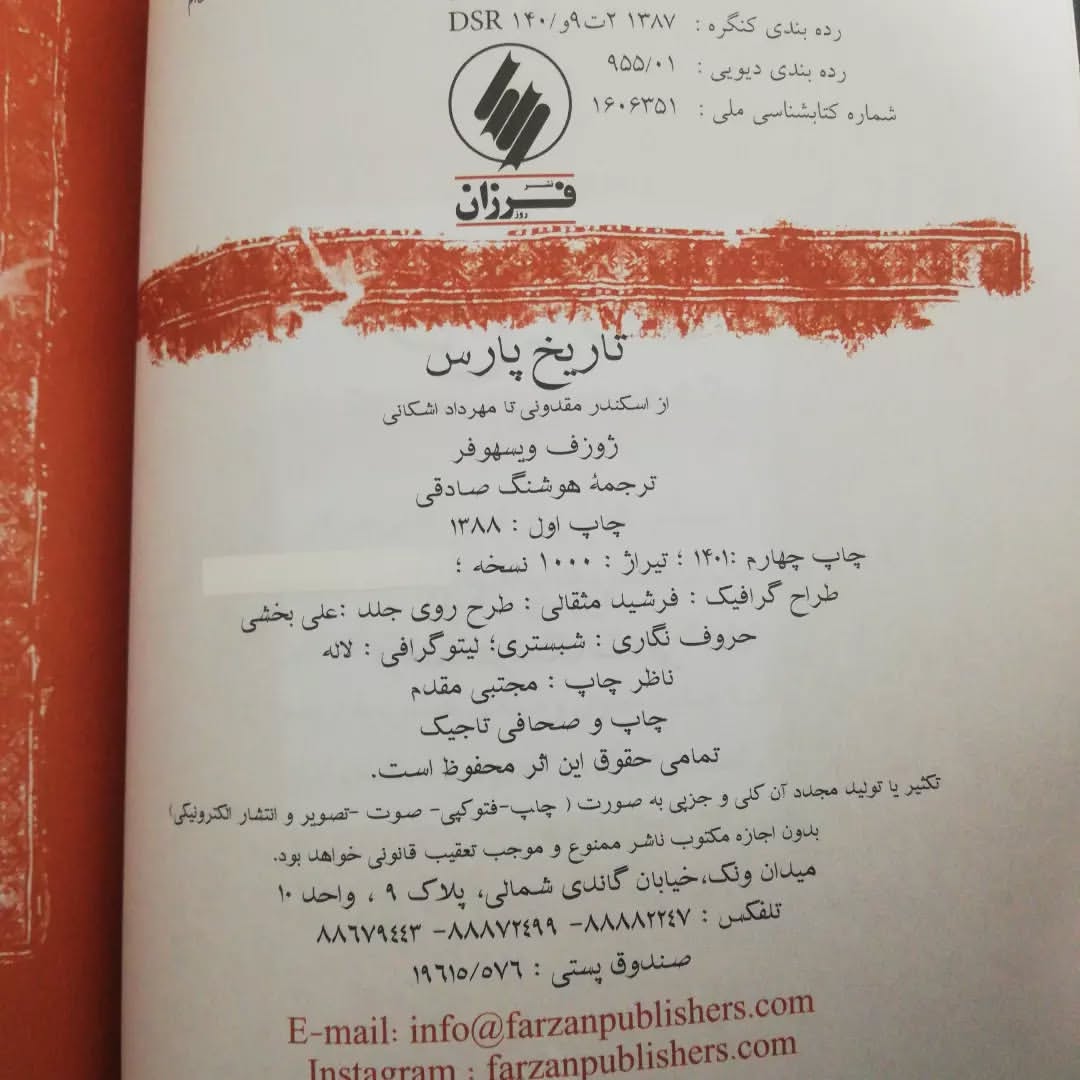 رده بندی کنگره : ۱۳۸۷ ۲ت۹و/۱۴۰ DSR
رده بندی دیویی : ۹۵۵/۰۱
شماره کتابشناسی ملی : ۱۶۰۶۳۵۱
نشر
فرزان
روز
تاریخ پارس
از اسکندر مقدونی تا مهرداد اشکانی
ژوزف ویسهوفر
ترجمهٔ هوشنگ صادقی
چاپ اول : ۱۳۸۸
چاپ چهارم :۱۴۰۱ ؛ تیراژ : ۱۰۰۰ نسخه ؛
طراح گرافیک : فرشید مثقالی : طرح روی جلد :علی بخشی
حروف نگاری : شبستری؛ لیتوگرافی : لاله
ناظر چاپ : مجتبی مقدم
چاپ و صحافی تاجیک
تمامی حقوق این اثر محفوظ است.
تکثیر یا تولید مجدد آن کلی و جزیی به صورت ( چاپ-فتوکپی- صوت -تصویر و انتشار الکترونیکی)
بدون اجازه مکتوب ناشر ممنوع و موجب تعقیب قانونی خواهد بود.
میدان ونک،خیابان گاندی شمالی، پلاک ۹ ، واحد ۱۰
تلفکس : ۸۸۸۸۲۲۴۷- ۸۸۸۷۲۴۹۹- ۸۸۶۷۹۴۴۳
صندوق پستی : ۱۹۶۱۵/۵۷۶
E-mail: info@farzanpublishers.com
Instagram : farzanpublishers.com